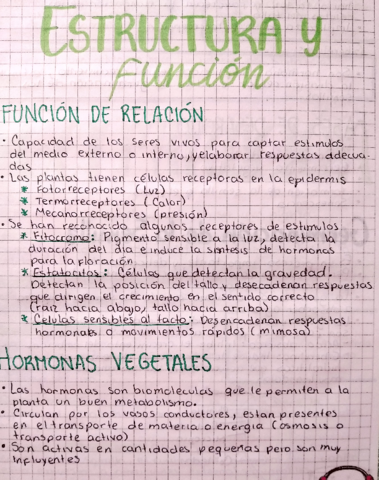 ESTRUCTURA y
función
FUNCIÓN DE RELACIÓN
• Capacidad de los seres vivos para captar estimulos
del medio externo o interno, y elaborar respuestas adecua-
das
• Las plantas tienen células receptoras en la epidermis
* Fotorreceptores (Luz)
* Termorreceptores (Calor)
* Mecanorreceptores (presión)
• Se han reconocido algunos receptores de estimulos
* Fitocromo: Pigmento sensible a la luz, detecta la
duración del dia e induce la sintesis de hormonas
para la floración
* Estatocitos: Células que detectan la gravedad.
Detectan la posición del tallo y desecadenan respuestas
que dirigen el crecimiento en el sentido correcto
(raiz hacia abajo/tallo hacia arriba)
* Celulas sensibles al tacto: Desencadenan respuestas
hormonales o movimientos rápidos (mimosa)
HORMONAS VEGETALES
• Las hormonas son biomoleculas que le permiten a la
planta un buen metabolismo.
• Circulan por los vasos conductores, estan presentes
en el transporte de materia o energia (osmosis o
transporte activo)
• Son activas en cantidades pequeñas pero son muy
influyentes